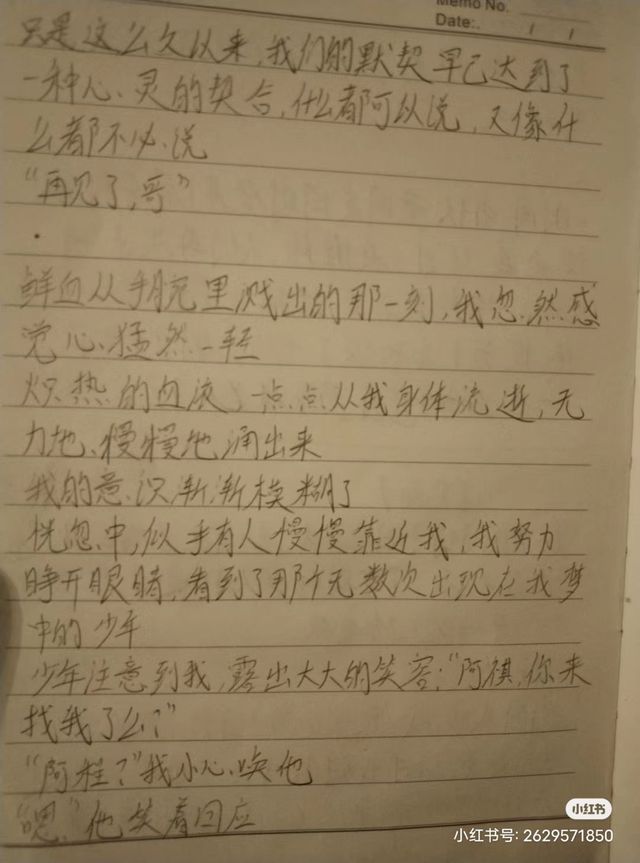 Memo No.
Date: / /
只是这么久以来,我们的默契早已达到了
一种心灵的契合,什么都可以说,又像什
么都不必说
“再见了,哥”
鲜血从手腕里溅出的那一刻,我忽然感
觉心猛然一轻
炽热的血液,一点点从我身体流逝,无
力地、慢慢地涌出来
我的意识渐渐模糊了
恍忽中,似乎有人慢慢靠近我,我努力
睁开眼睛,看到了那个无数次出现在我梦
中的少年
少年注意到我,露出大大的笑容:“阿祺,你来
找我了么?”
“阿程?”我小心唤他
“嗯,”他笑着回应
小红书
小红书号: 2629571850